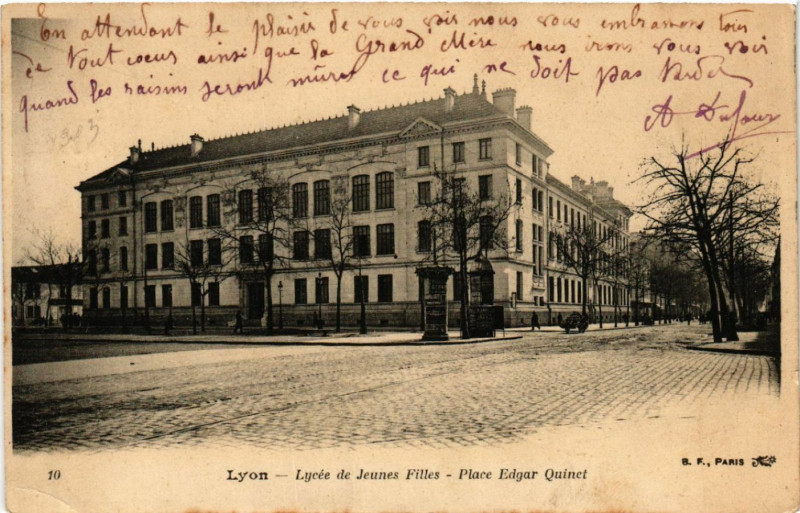 En attendant le plaisir de vous voir nous vous embrassons tous
de tout coeur ainsi que la Grand'Mère nous irons vous voir
quand les raisins seront mûrs ce qui ne doit pas tarder
A Dufour
1903
10
Lyon — Lycée de Jeunes Filles - Place Edgar Quinet
B. F., PARIS